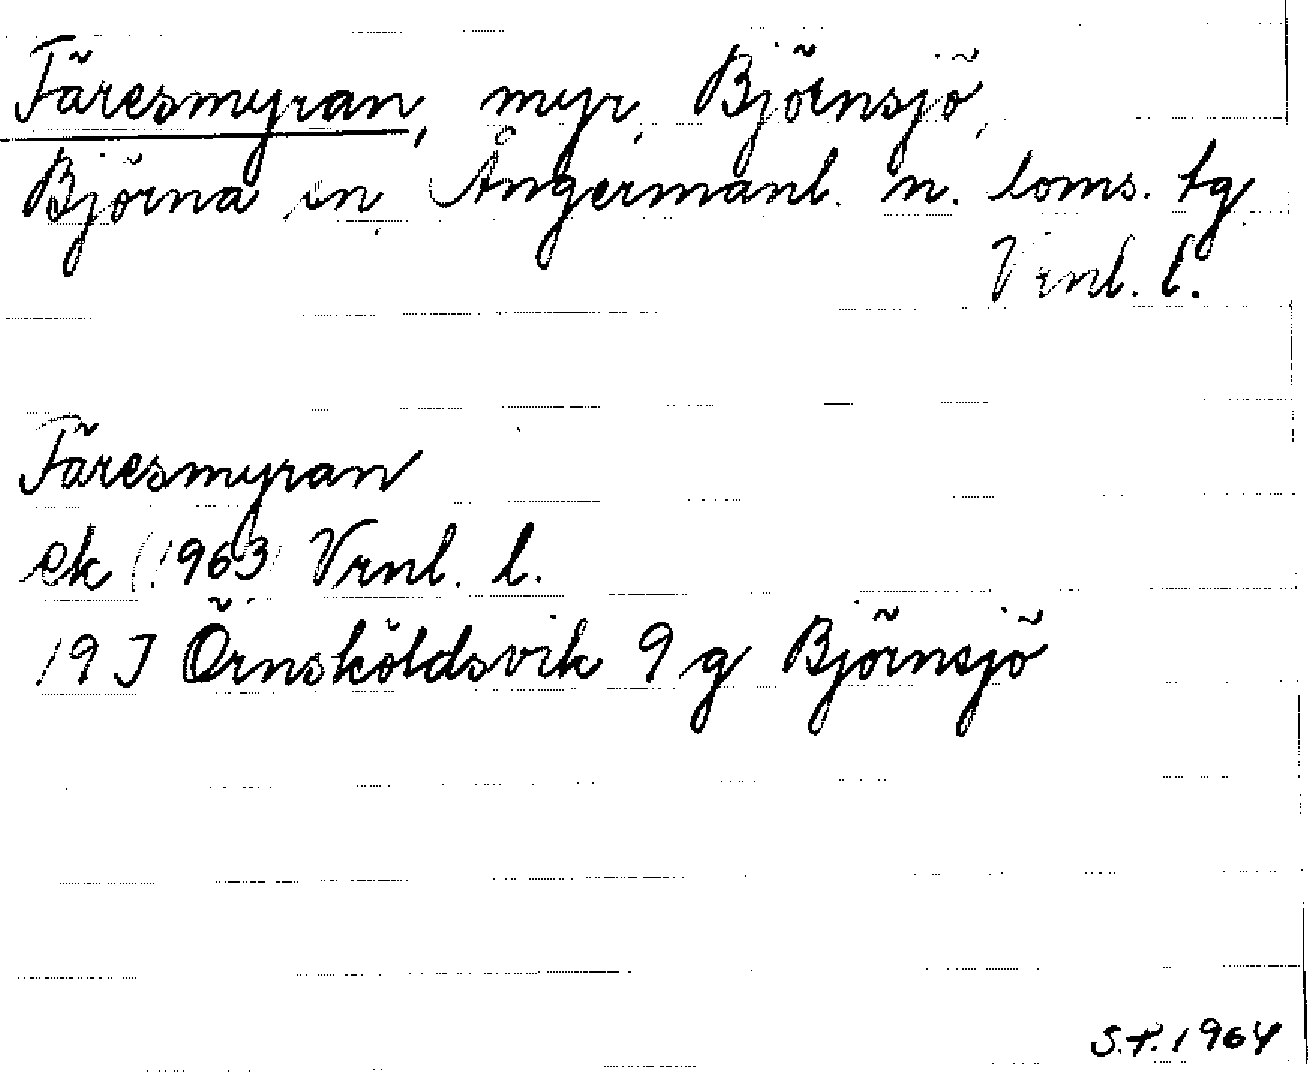 Färesmyran, myr, Björnsjö,
Björna sn, Ångermanl. n. loms. tg
Vrnl. l.
Färesmyran
ek (1963) Vrnl. l.
19 J Örnsköldsvik 9 g Björnsjö
S.P. 1964